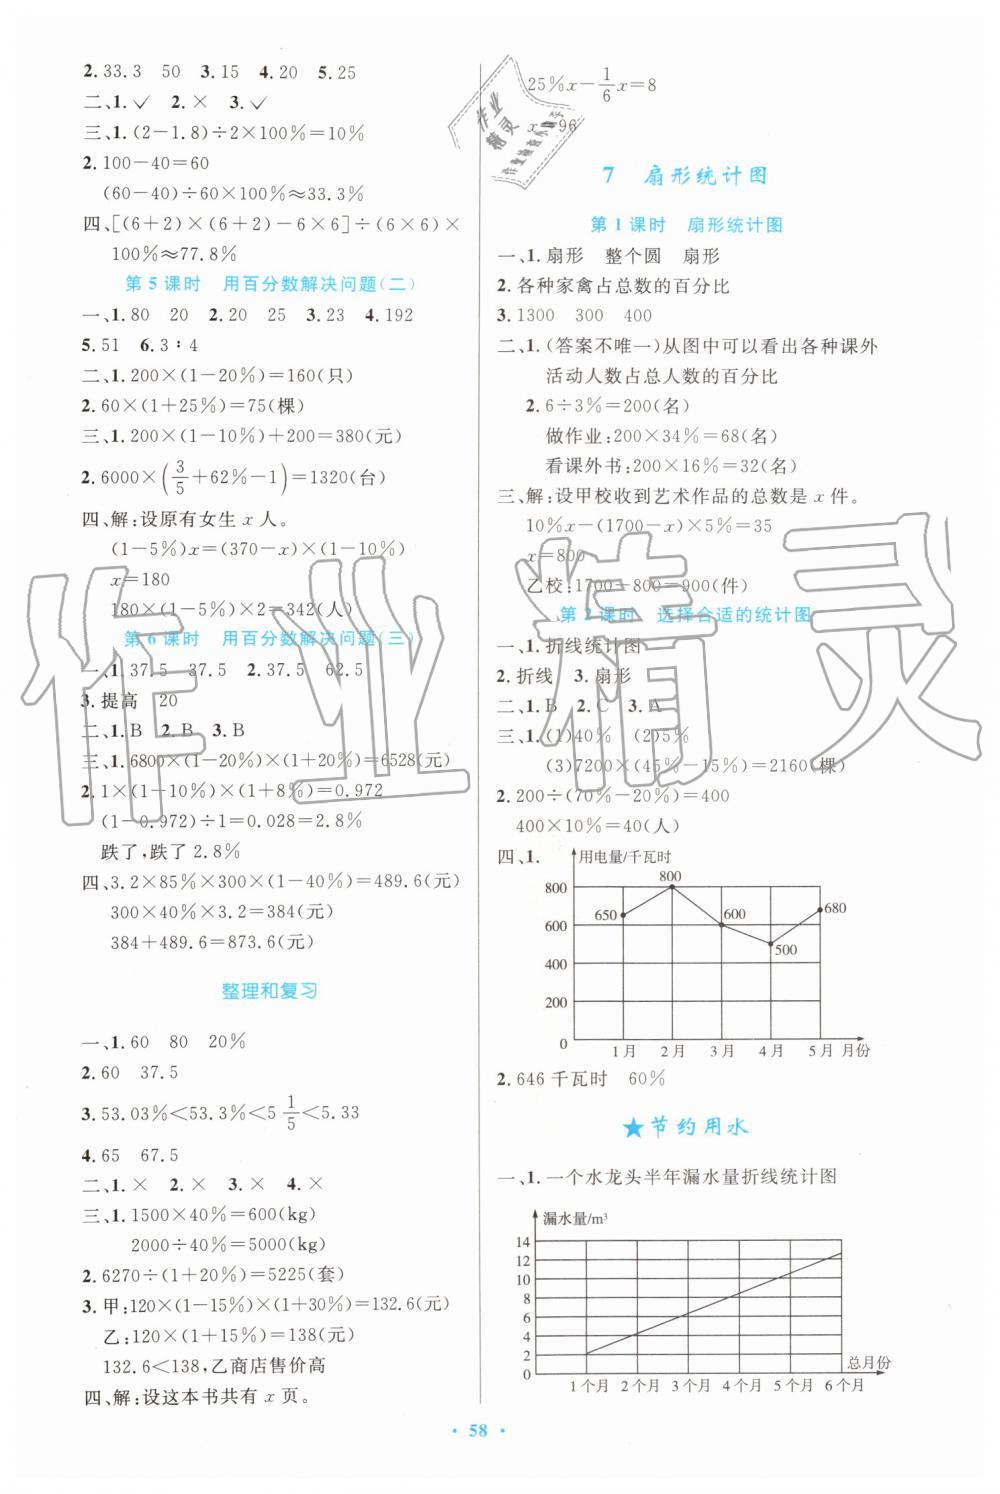 2.33.3 50 3.15 4.20 5.25
二、1.✓ 2.× 3.✓
三、1.(2-1.8)÷2×100%=10%
2.100-40=60
(60-40)÷60×100%≈33.3%
四、[(6+2)×(6+2)-6×6]÷(6×6)×
100%≈77.8%
第5课时 用百分数解决问题(二)
一、1.80 20 2.20 25 3.23 4.192
5.51 6.3∶4
二、1.200×(1-20%)=160(只)
2.60×(1+25%)=75(棵)
三、1.200×(1-10%)+200=380(元)
2.6000×(3/5+62%-1)=1320(台)
四、解:设原有女生 x 人。
(1-5%)x=(370-x)×(1-10%)
x=180
180×(1-5%)×2=342(人)
第6课时 用百分数解决问题(三)
一、1.37.5 37.5 2.37.5 62.5
3.提高 20
二、1.B 2.B 3.B
三、1.6800×(1-20%)×(1+20%)=6528(元)
2.1×(1-10%)×(1+8%)=0.972
(1-0.972)÷1=0.028=2.8%
跌了,跌了 2.8%
四、3.2×85%×300×(1-40%)=489.6(元)
300×40%×3.2=384(元)
384+489.6=873.6(元)
整理和复习
一、1.60 80 20%
2.60 37.5
3.53.03%<53.3%<5 1/5<5.33
4.65 67.5
二、1.× 2.× 3.× 4.×
三、1.1500×40%=600(kg)
2000÷40%=5000(kg)
2.6270÷(1+20%)=5225(套)
3.甲:120×(1-15%)×(1+30%)=132.6(元)
乙:120×(1+15%)=138(元)
132.6<138,乙商店售价高
四、解:设这本书共有 x 页。
25%x-1/6x=8
96
作业
精灵
7 扇形统计图
第1课时 扇形统计图
一、1.扇形 整个圆 扇形
2.各种家禽占总数的百分比
3.1300 300 400
二、1.(答案不唯一)从图中可以看出各种课外
活动人数占总人数的百分比
2.6÷3%=200(名)
做作业:200×34%=68(名)
看课外书:200×16%=32(名)
三、解:设甲校收到艺术作品的总数是 x 件。
10%x-(1700-x)×5%=35
x=800
乙校:1700-800=900(件)
第2课时 选择合适的统计图
一、1.折线统计图
2.折线 3.扇形
二、1.B 2.C 3.A
三、1.(1)40% (2)5%
(3)7200×(45%-15%)=2160(棵)
2.200÷(70%-20%)=400
400×10%=40(人)
四、1.
用电量/千瓦时
800
600
400
200
0
650
800
600
500
680
1月 2月 3月 4月 5月 月份
2.646千瓦时 60%
★节约用水
一、1.一个水龙头半年漏水量折线统计图
漏水量/m³
14
12
10
8
6
4
2
0
总月份
1个月 2个月 3个月 4个月 5个月 6个月
作业精灵
· 58 ·